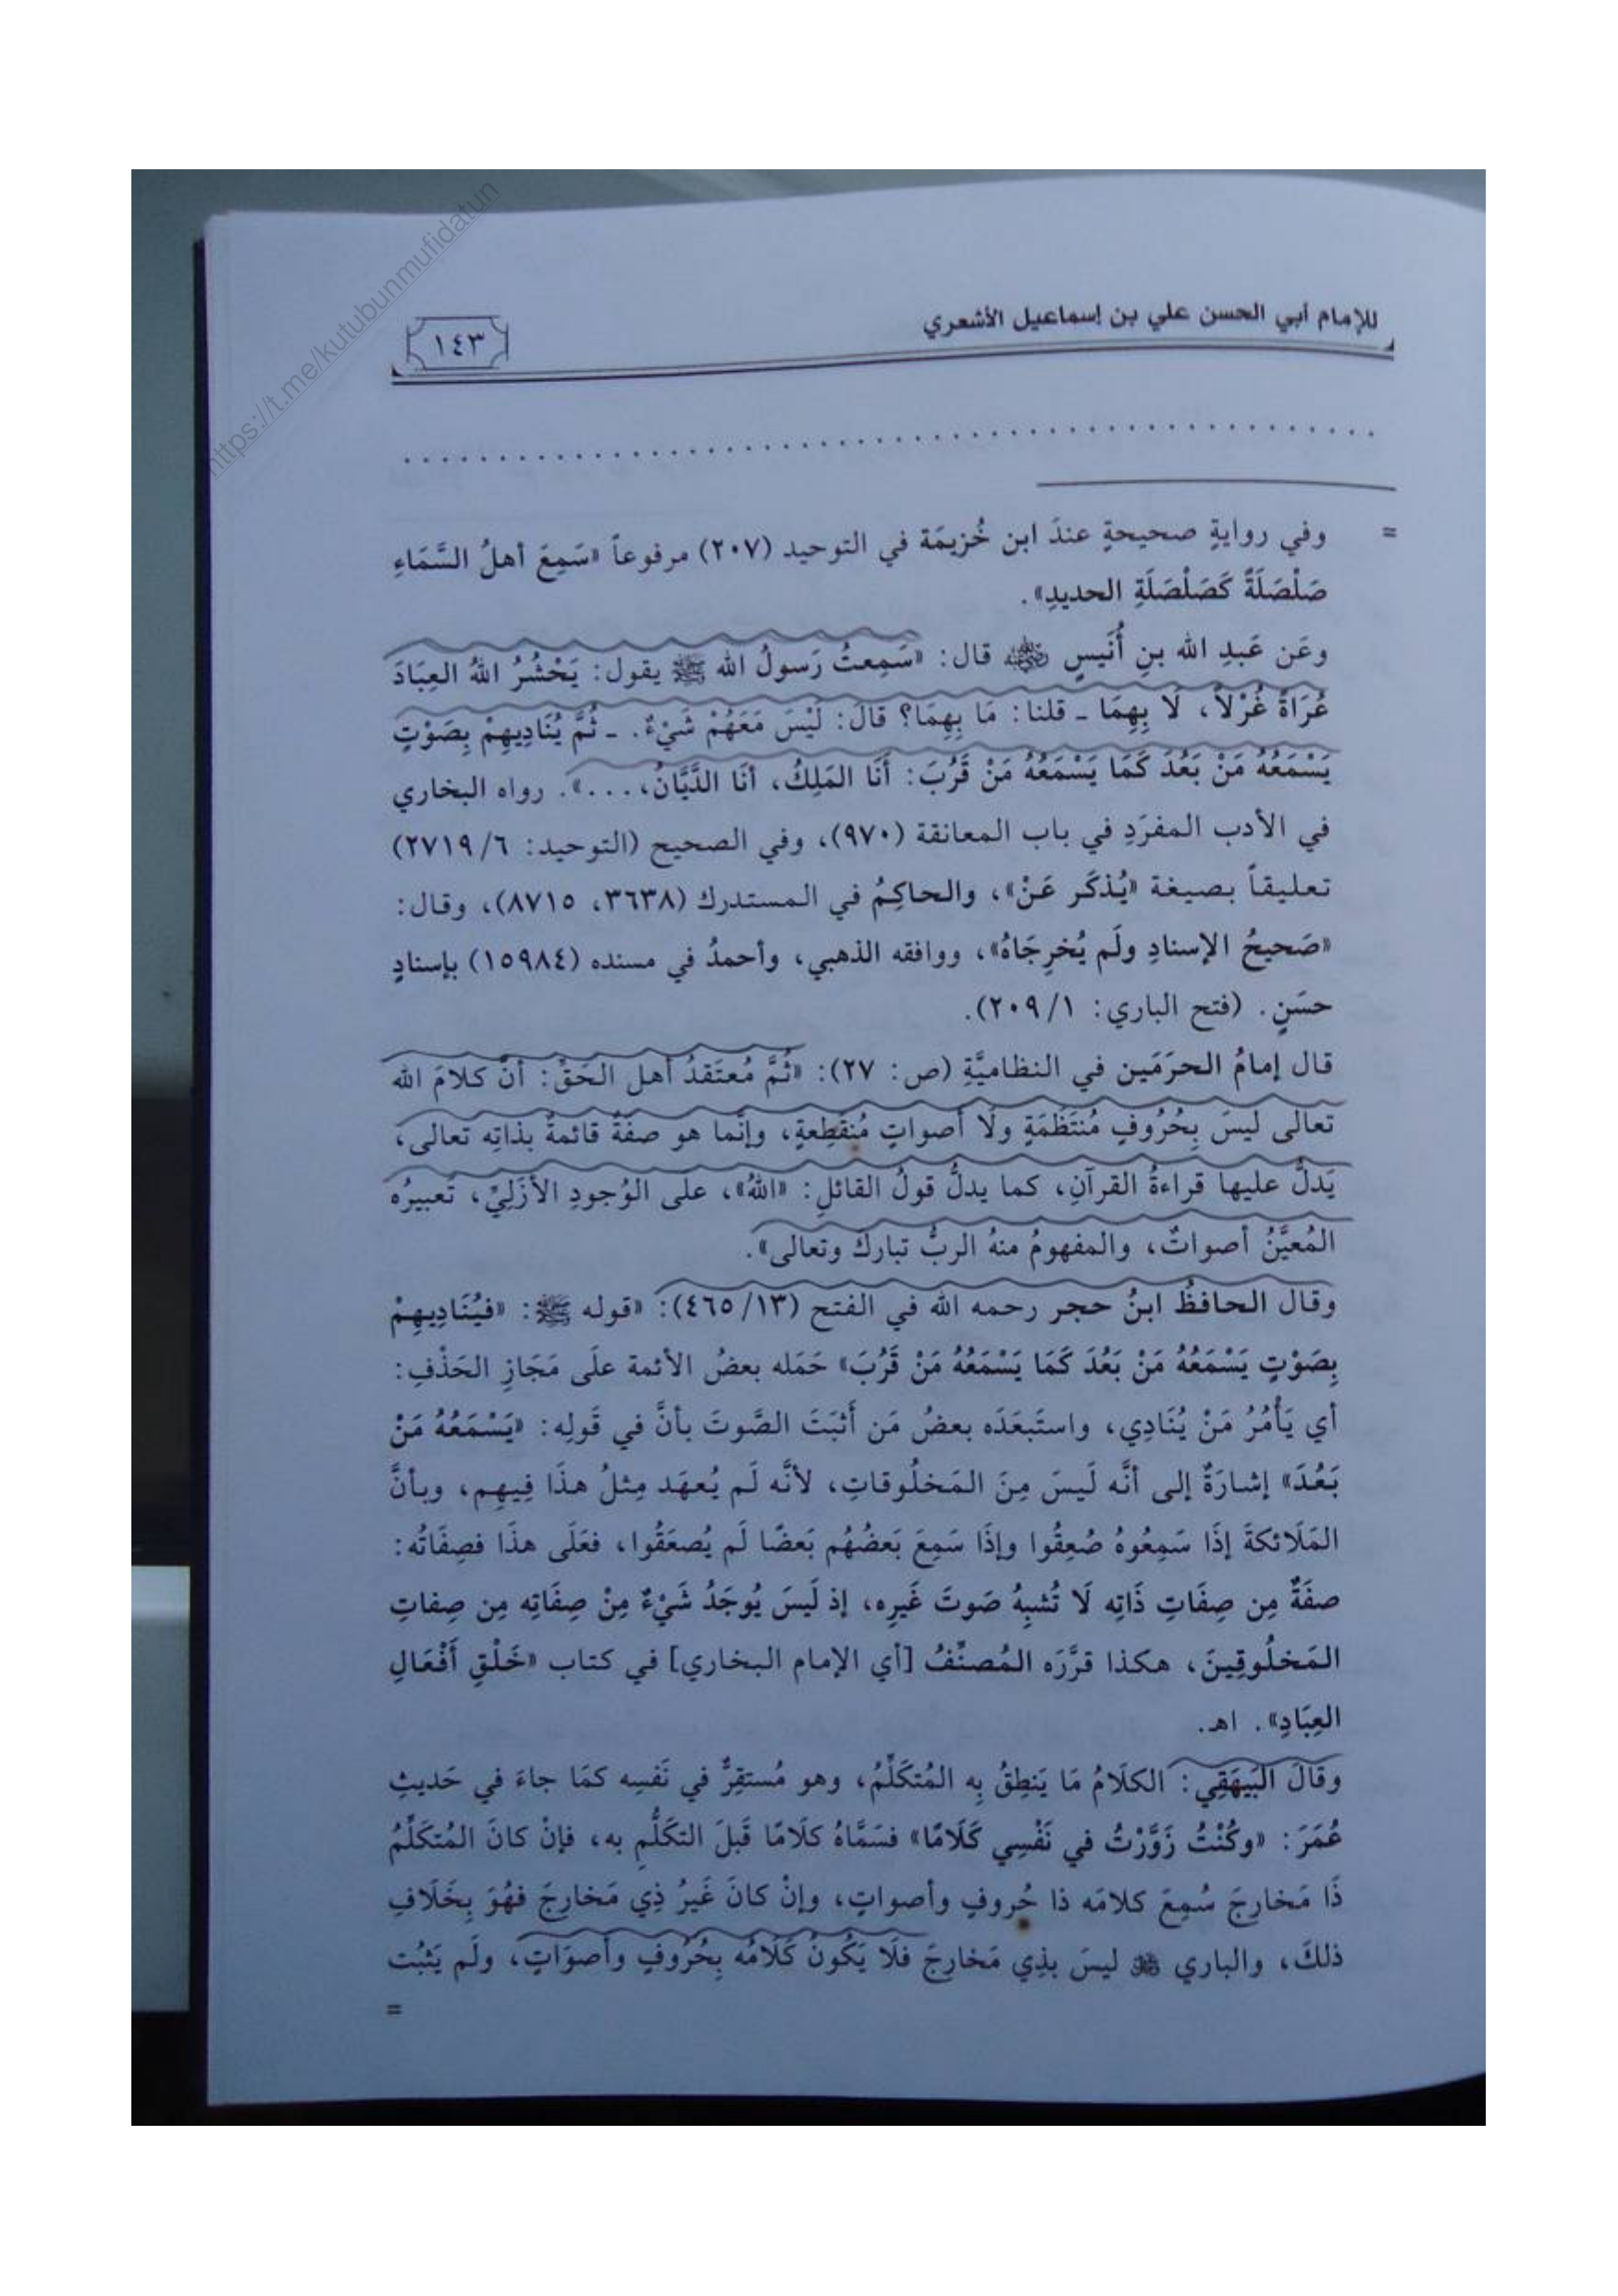 https://t.me/kutubunmufidatun
للإمام أبي الحسن علي بن إسماعيل الأشعري
١٤٣
........................................
= وفي روايةٍ صحيحةٍ عندَ ابن خُزيمَة في التوحيد (٢٠٧) مرفوعاً «سَمِعَ أهلُ السَّمَاءِ
صَلْصَلَةً كَصَلْصَلَةِ الحديدِ».
وعَن عَبدِ الله بنِ أُنَيسٍ رضي الله عنه قال: «سَمِعتُ رَسولُ الله ﷺ يقول: يَحْشُرُ اللهُ العِبَادَ
عُرَاةً غُرْلاً، لَا بِهِمَا ـ قلنا: مَا بِهِمَا؟ قالَ: لَيْسَ مَعَهُمْ شَيْءٌ. ـ ثُمَّ يُنَادِيهِمْ بِصَوْتٍ
يَسْمَعُهُ مَنْ بَعُدَ كَمَا يَسْمَعُهُ مَنْ قَرُبَ: أَنَا المَلِكُ، أَنَا الدَّيَّانُ،...». رواه البخاري
في الأدب المفرَدِ في باب المعانقة (٩٧٠)، وفي الصحيح (التوحيد: ٢٧١٩/٦)
تعليقاً بصيغة «يُذكَر عَنْ»، والحاكِمُ في المستدرك (٣٦٣٨، ٨٧١٥)، وقال:
«صَحيحُ الإسنادِ ولَم يُخرِجَاهُ»، ووافقه الذهبي، وأحمدُ في مسنده (١٥٩٨٤) بإسنادٍ
حسَنٍ. (فتح الباري: ٢٠٩/١).
قال إمامُ الحرَمَين في النظاميَّةِ (ص: ٢٧): «ثُمَّ مُعتَقدُ أهل الحَقِّ: أنَّ كلامَ الله
تعالَى ليسَ بِحُرُوفٍ مُنتَظَمَةٍ ولَا أصواتٍ مُنقَطِعةٍ، وإنَّما هو صفَةٌ قائمةٌ بذاتِه تعالى،
يَدلُّ عليها قراءةُ القرآنِ، كما يدلُّ قولُ القائلِ: «اللهُ»، علَى الوُجودِ الأزَلِيِّ، تَعبيرُه
المُعيَّنُ أصواتٌ، والمفهومُ منهُ الربُّ تباركَ وتعالى».
وقال الحافظُ ابنُ حجر رحمه الله في الفتح (٤٦٥/١٣): «قوله ﷺ: «فيُنَادِيهِمْ
بِصَوْتٍ يَسْمَعُهُ مَنْ بَعُدَ كَمَا يَسْمَعُهُ مَنْ قَرُبَ» حَمَله بعضُ الأئمة علَى مَجَازِ الحَذْفِ:
أي يَأْمُرُ مَنْ يُنَادِي، واستَبعَدَه بعضُ مَن أَثبَتَ الصَّوتَ بأنَّ في قَولِه: «يَسْمَعُهُ مَنْ
بَعُدَ» إشارَةٌ إلى أنَّه لَيسَ مِنَ المَخلُوقاتِ، لأنَّه لَم يُعهَد مِثلُ هذَا فِيهِم، وبأنَّ
المَلَائكةَ إذَا سَمِعُوهُ صُعِقُوا وإذَا سَمِعَ بَعضُهُم بَعضًا لَم يُصعَقُوا، فعَلَى هذَا فصِفَاتُه:
صفَةٌ مِن صِفَاتِ ذَاتِه لَا تُشبِهُ صَوتَ غَيرِه، إذ لَيسَ يُوجَدُ شَيْءٌ مِنْ صِفَاتِه مِن صِفاتِ
المَخلُوقِينَ، هكذا قرَّرَه المُصنِّفُ [أي الإمام البخاري] في كتاب «خَلْقِ أَفْعَالِ
العِبَادِ». اهـ.
وقَالَ البَيهَقِي: الكلَامُ مَا يَنطِقُ بِه المُتكَلِّمُ، وهو مُستقِرٌّ في نَفسِه كمَا جاءَ في حَديثِ
عُمَرَ: «وكُنْتُ زَوَّرْتُ في نَفْسِي كَلَامًا» فسَمَّاهُ كلَامًا قَبلَ التكَلُّمِ به، فإنْ كانَ المُتكَلِّمُ
ذَا مَخارِجَ سُمِعَ كلامَه ذا حُروفٍ وأصواتٍ، وإنْ كانَ غَيرُ ذِي مَخارِجَ فهُوَ بِخَلَافِ
ذلكَ، والباري ﷻ ليسَ بذِي مَخارِجَ فلَا يَكُونُ كَلَامُه بِحُرُوفٍ وأصوَاتٍ، ولَم يَثبُت
=